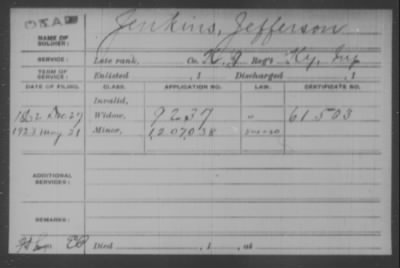 NAME OF SOLDIER: Jenkins, Jefferson
SERVICE: Late rank, Co. K, 9 Reg't Ky. Inf
TERM OF SERVICE: Enlisted , 1 Discharged , 1
DATE OF FILING. CLASS. APPLICATION NO. LAW. CERTIFICATE NO.
Invalid,
Dec 27 Widow, 9237 " 61503
1923 May 21 Minor, 1207038
ADDITIONAL SERVICES:
REMARKS:
Died , 1 , at